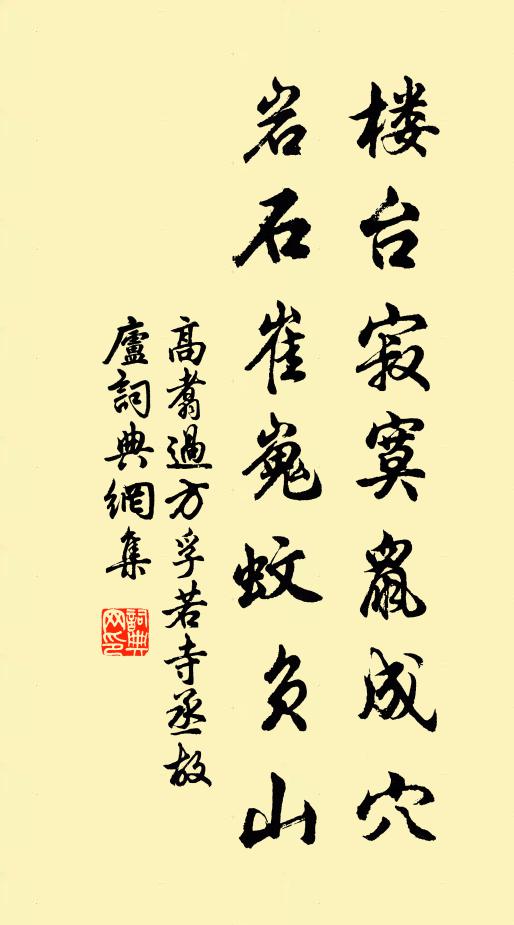 楼台寂寞鼠成穴
岩石崔嵬蚊负山
高翥過方孚若寺丞故
廬詞典網集
詞典網印